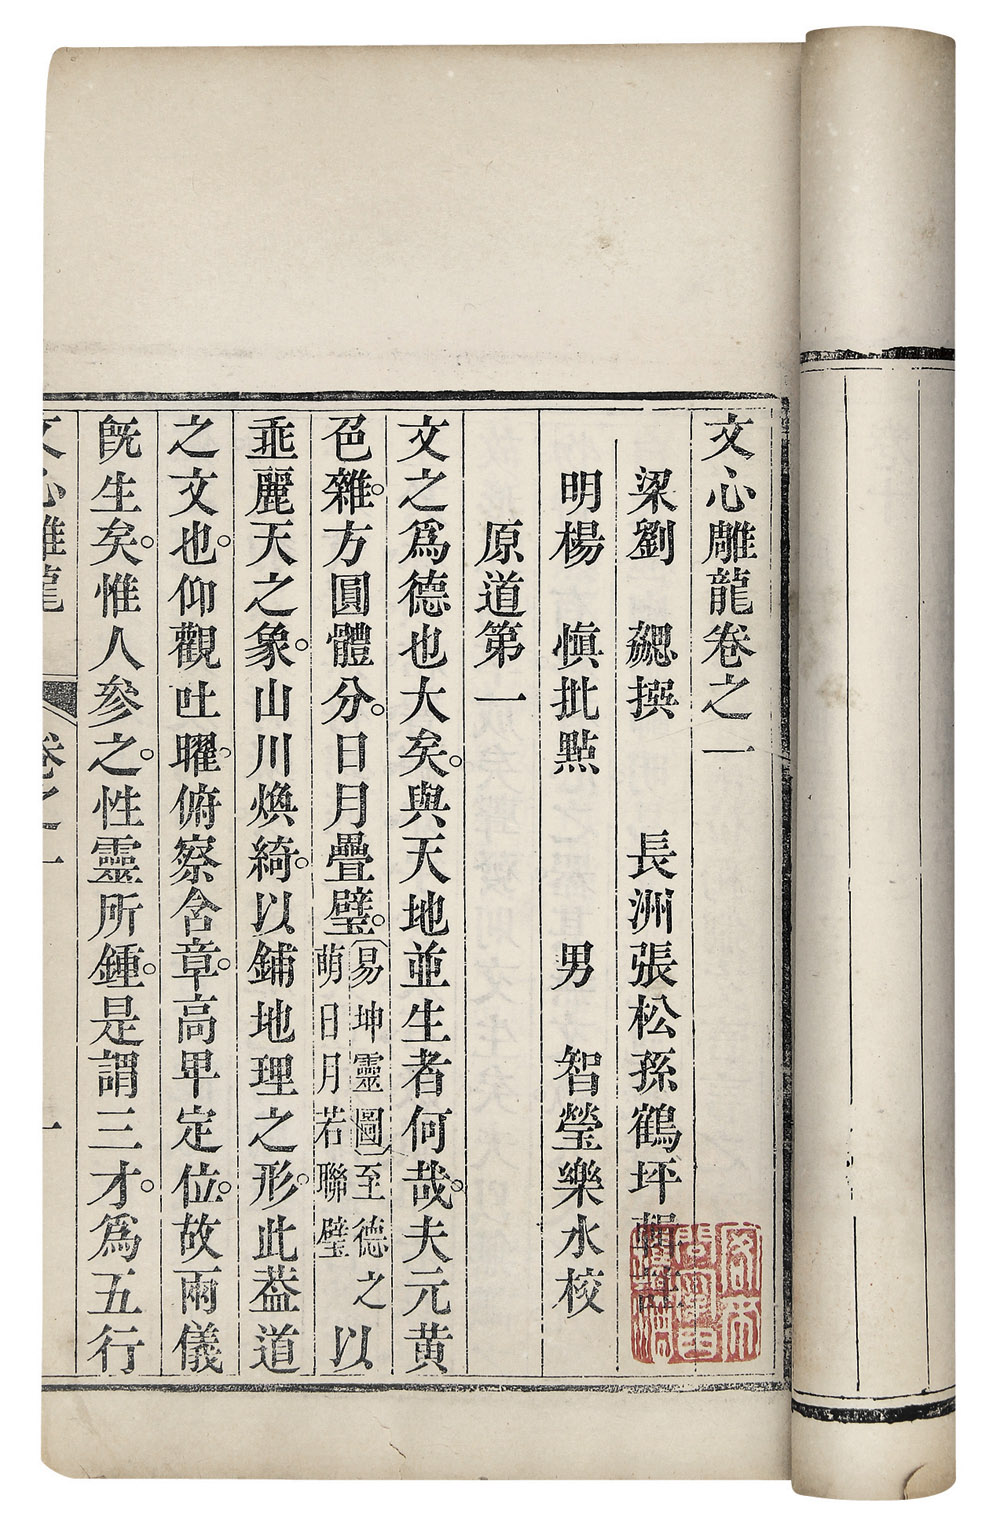 文心雕龍卷之一
梁劉　勰撰　長洲張松孫鶴坪輯註
明楊　慎批點　男　智瑩樂水校
原道第一
文之爲德也大矣。與天地並生者何哉。夫元黄
色雜。方圓體分。日月疊璧。易坤靈圖至德之萌日月若聯璧以
埀麗天之象。山川煥綺。以鋪地理之形。此葢道
之文也。仰觀吐曜。俯察含章。高卑定位。故兩儀
旣生矣。惟人參之。性靈所鍾。是謂三才。爲五行
文心雕龍　卷之一　一